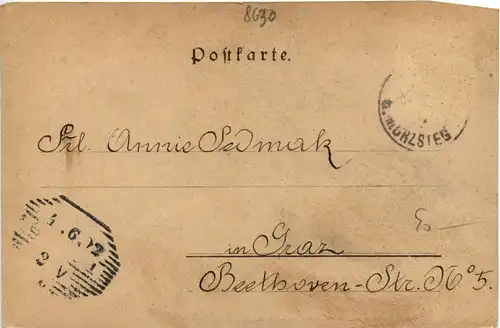 8630
Postkarte.
B. MÜRZSTEG
Frl. Annie Sedmak
1.6.02
2 V
in Graz
Beethoven-Str. No 5.